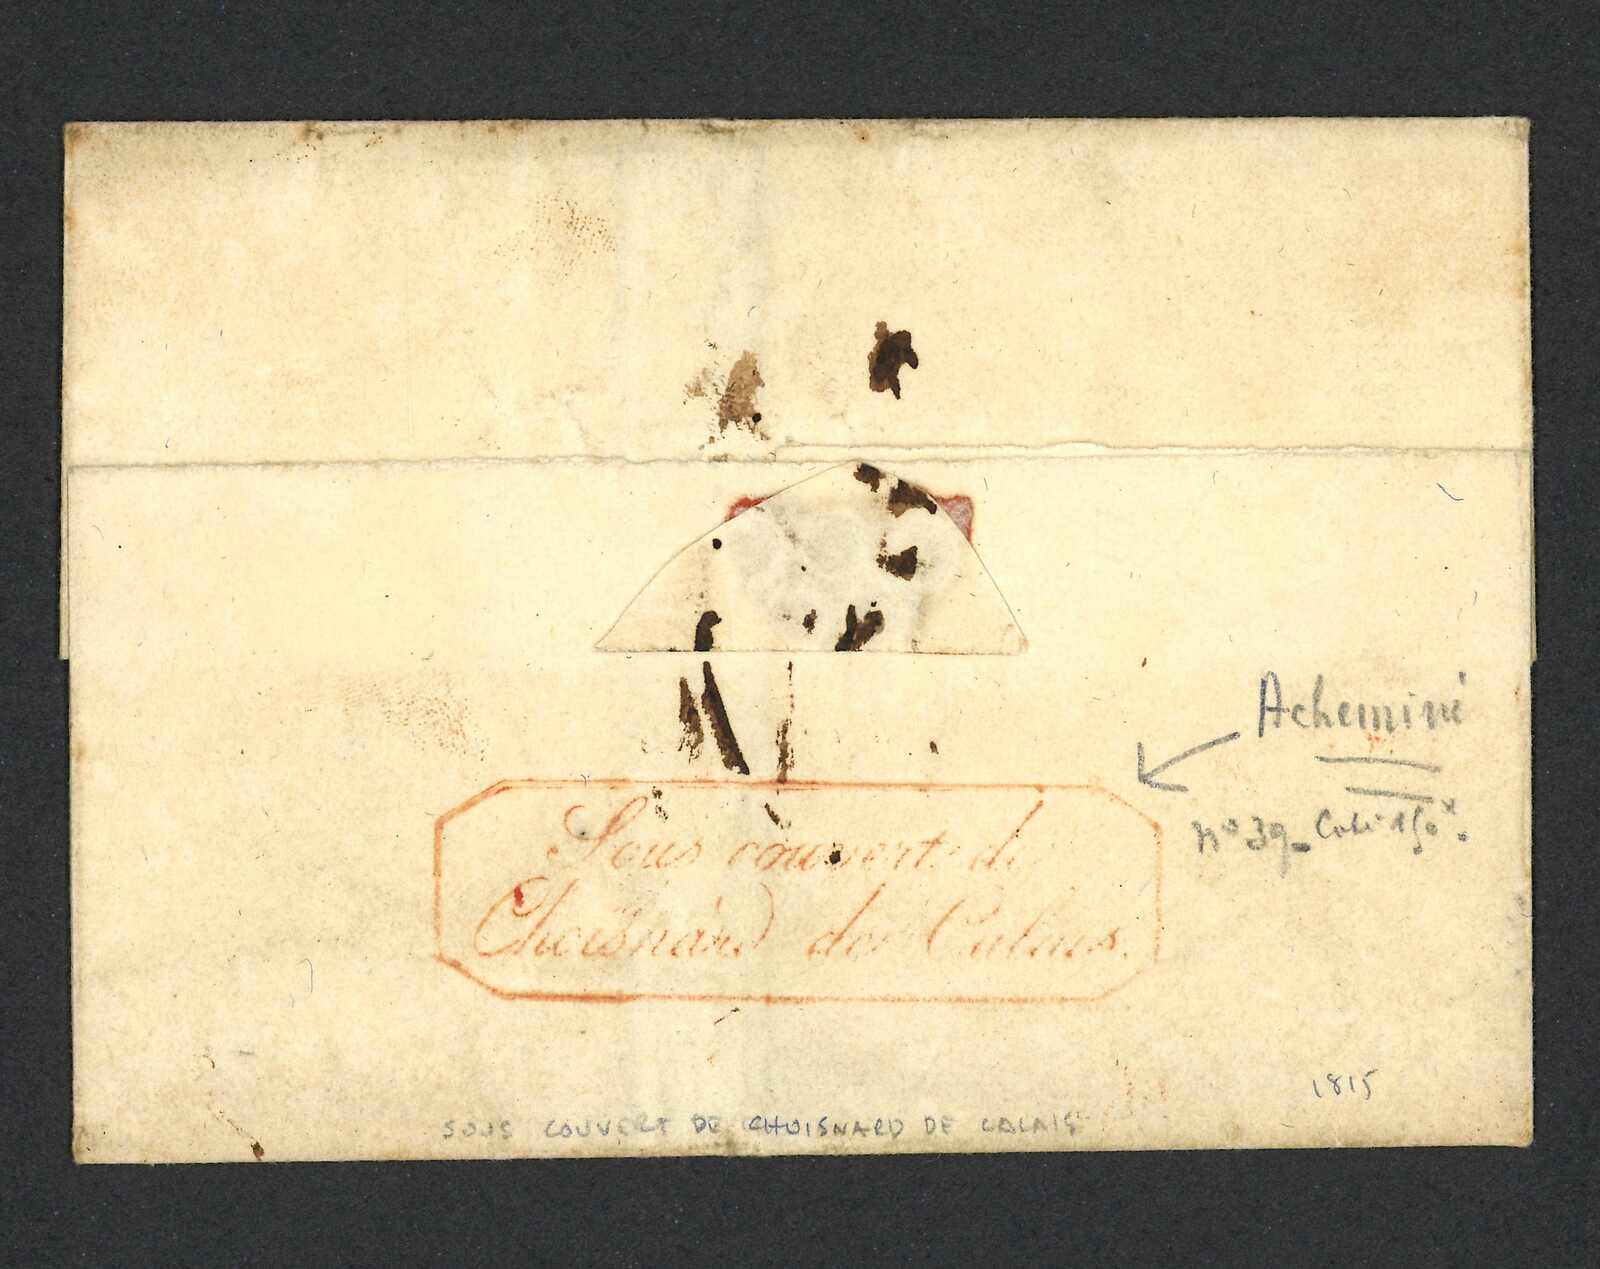 Acheminé
n° 39_ Coté 150ˣ.
Sous couvert de
Choisnard de Calais.
1815
SOUS COUVERT DE CHOISNARD DE CALAIS